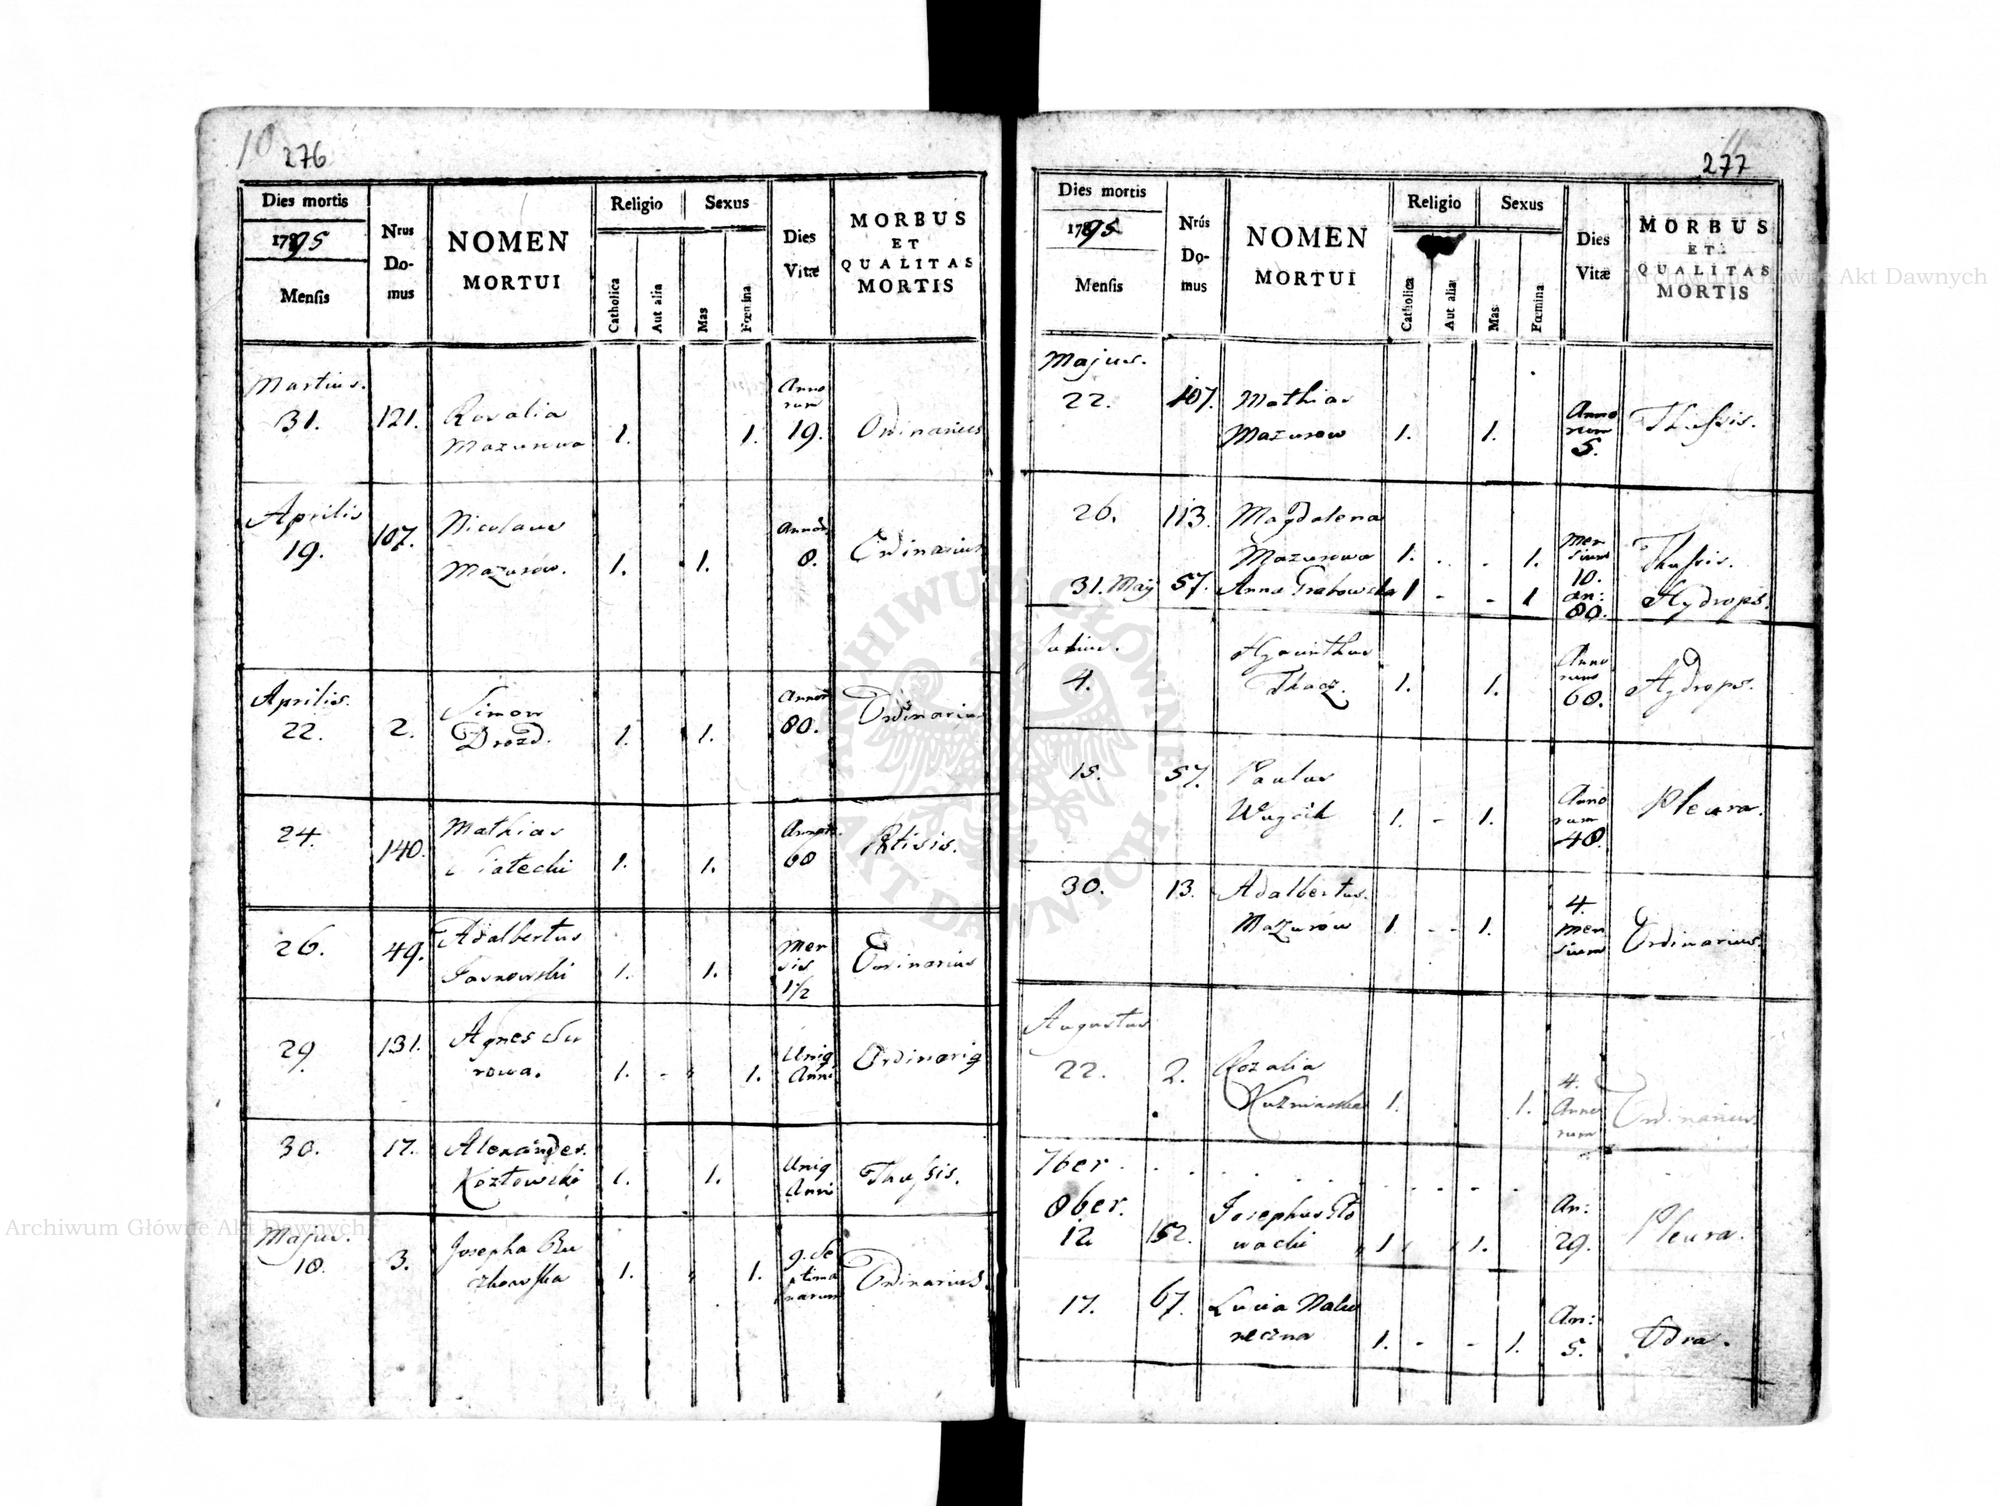 10 276
Dies mortis
1795
Mensis
Nrus Do-mus
NOMEN MORTUI
Religio
Catholica
Aut alia
Sexus
Mas
Fœmina
Dies Vitæ
MORBUS ET QUALITAS MORTIS
Martius.
31. 121. Rosalia Mazurowa 1. 1. Annorum 19. Ordinarius
Aprilis
19. 107. Nicolaus Mazurów. 1. 1. Annor 8. Ordinarius
Aprilis.
22. 2. Simon Drozd. 1. 1. Annor 80. Ordinarius
24. 140. Mathias 1. 1. Annor. 60 Ptisis.
26. 49. Adalbertus 1. 1. Mensis 1 1/2 Ordinarius
29. 131. Agnes Surowa. 1. - 1. Uniq Anni Ordinariq
30. 17. Alexander Kozłowski 1. 1. Uniq Anni Thussis.
Majus.
10. 3. Josepha 1. 1. 9. Septimanarum Ordinarius.
277
Dies mortis
1795
Mensis
Nrús Do-mus
NOMEN MORTUI
Religio
Catholica
Aut alia
Sexus
Mas
Fœmina
Dies Vitæ
MORBUS ET QUALITAS MORTIS
Majus.
22. 107. Mathias Mazurow 1. 1. Annorum 5. Thussis.
26. 113. Magdalena Mazurowa 1. - - 1. Mensium 10. Thussis.
31. May 57. Anna Grabowska 1 - - 1 an: 80. Hydrops.
Junius.
4. Hyacinthus Tkacz. 1. 1. Annorum 60. Hydrops.
15. 57. Paulus Wuycik 1. - 1. Annorum 40. Pleura.
30. 13. Adalbertus Mazurów 1 - - 1. 4. Mensium Ordinarius
Augustus
22. 2. Rozalia Kuzniarska 1. 1. 4. Annorum Ordinarius
7ber. . . . . . - - -
8ber.
12 152. Josephus Słowacki 1. 1. An: 29. Pleura.
17. 67. Lucia 1. - - 1. An: 5. Odra.
Archiwum Główne Akt Dawnych
Archiwum Główne Akt Dawnych
ARCHIWUM GŁÓWNE AKT DAWNYCH